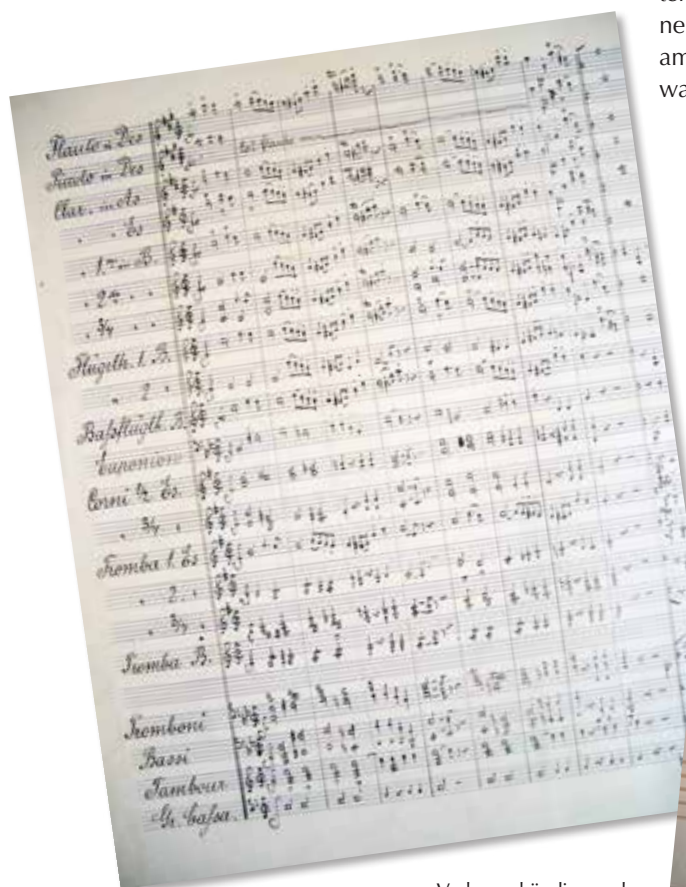 ne
am
wa
Flaute in Des
Piccolo in Des
Clar. in As
" " Es
" 1. in B.
" 2 " "
" 3/4 " "
Flügelh. 1. B.
" 2 "
Baßflüglh. B.
Euponion
Corni 1/2 Es.
" 3/4 "
Tromba 1. Es
" 2. "
" 3/4 "
Tromba B.
Tromboni
Bassi
Tambour
Gr. Caßa.